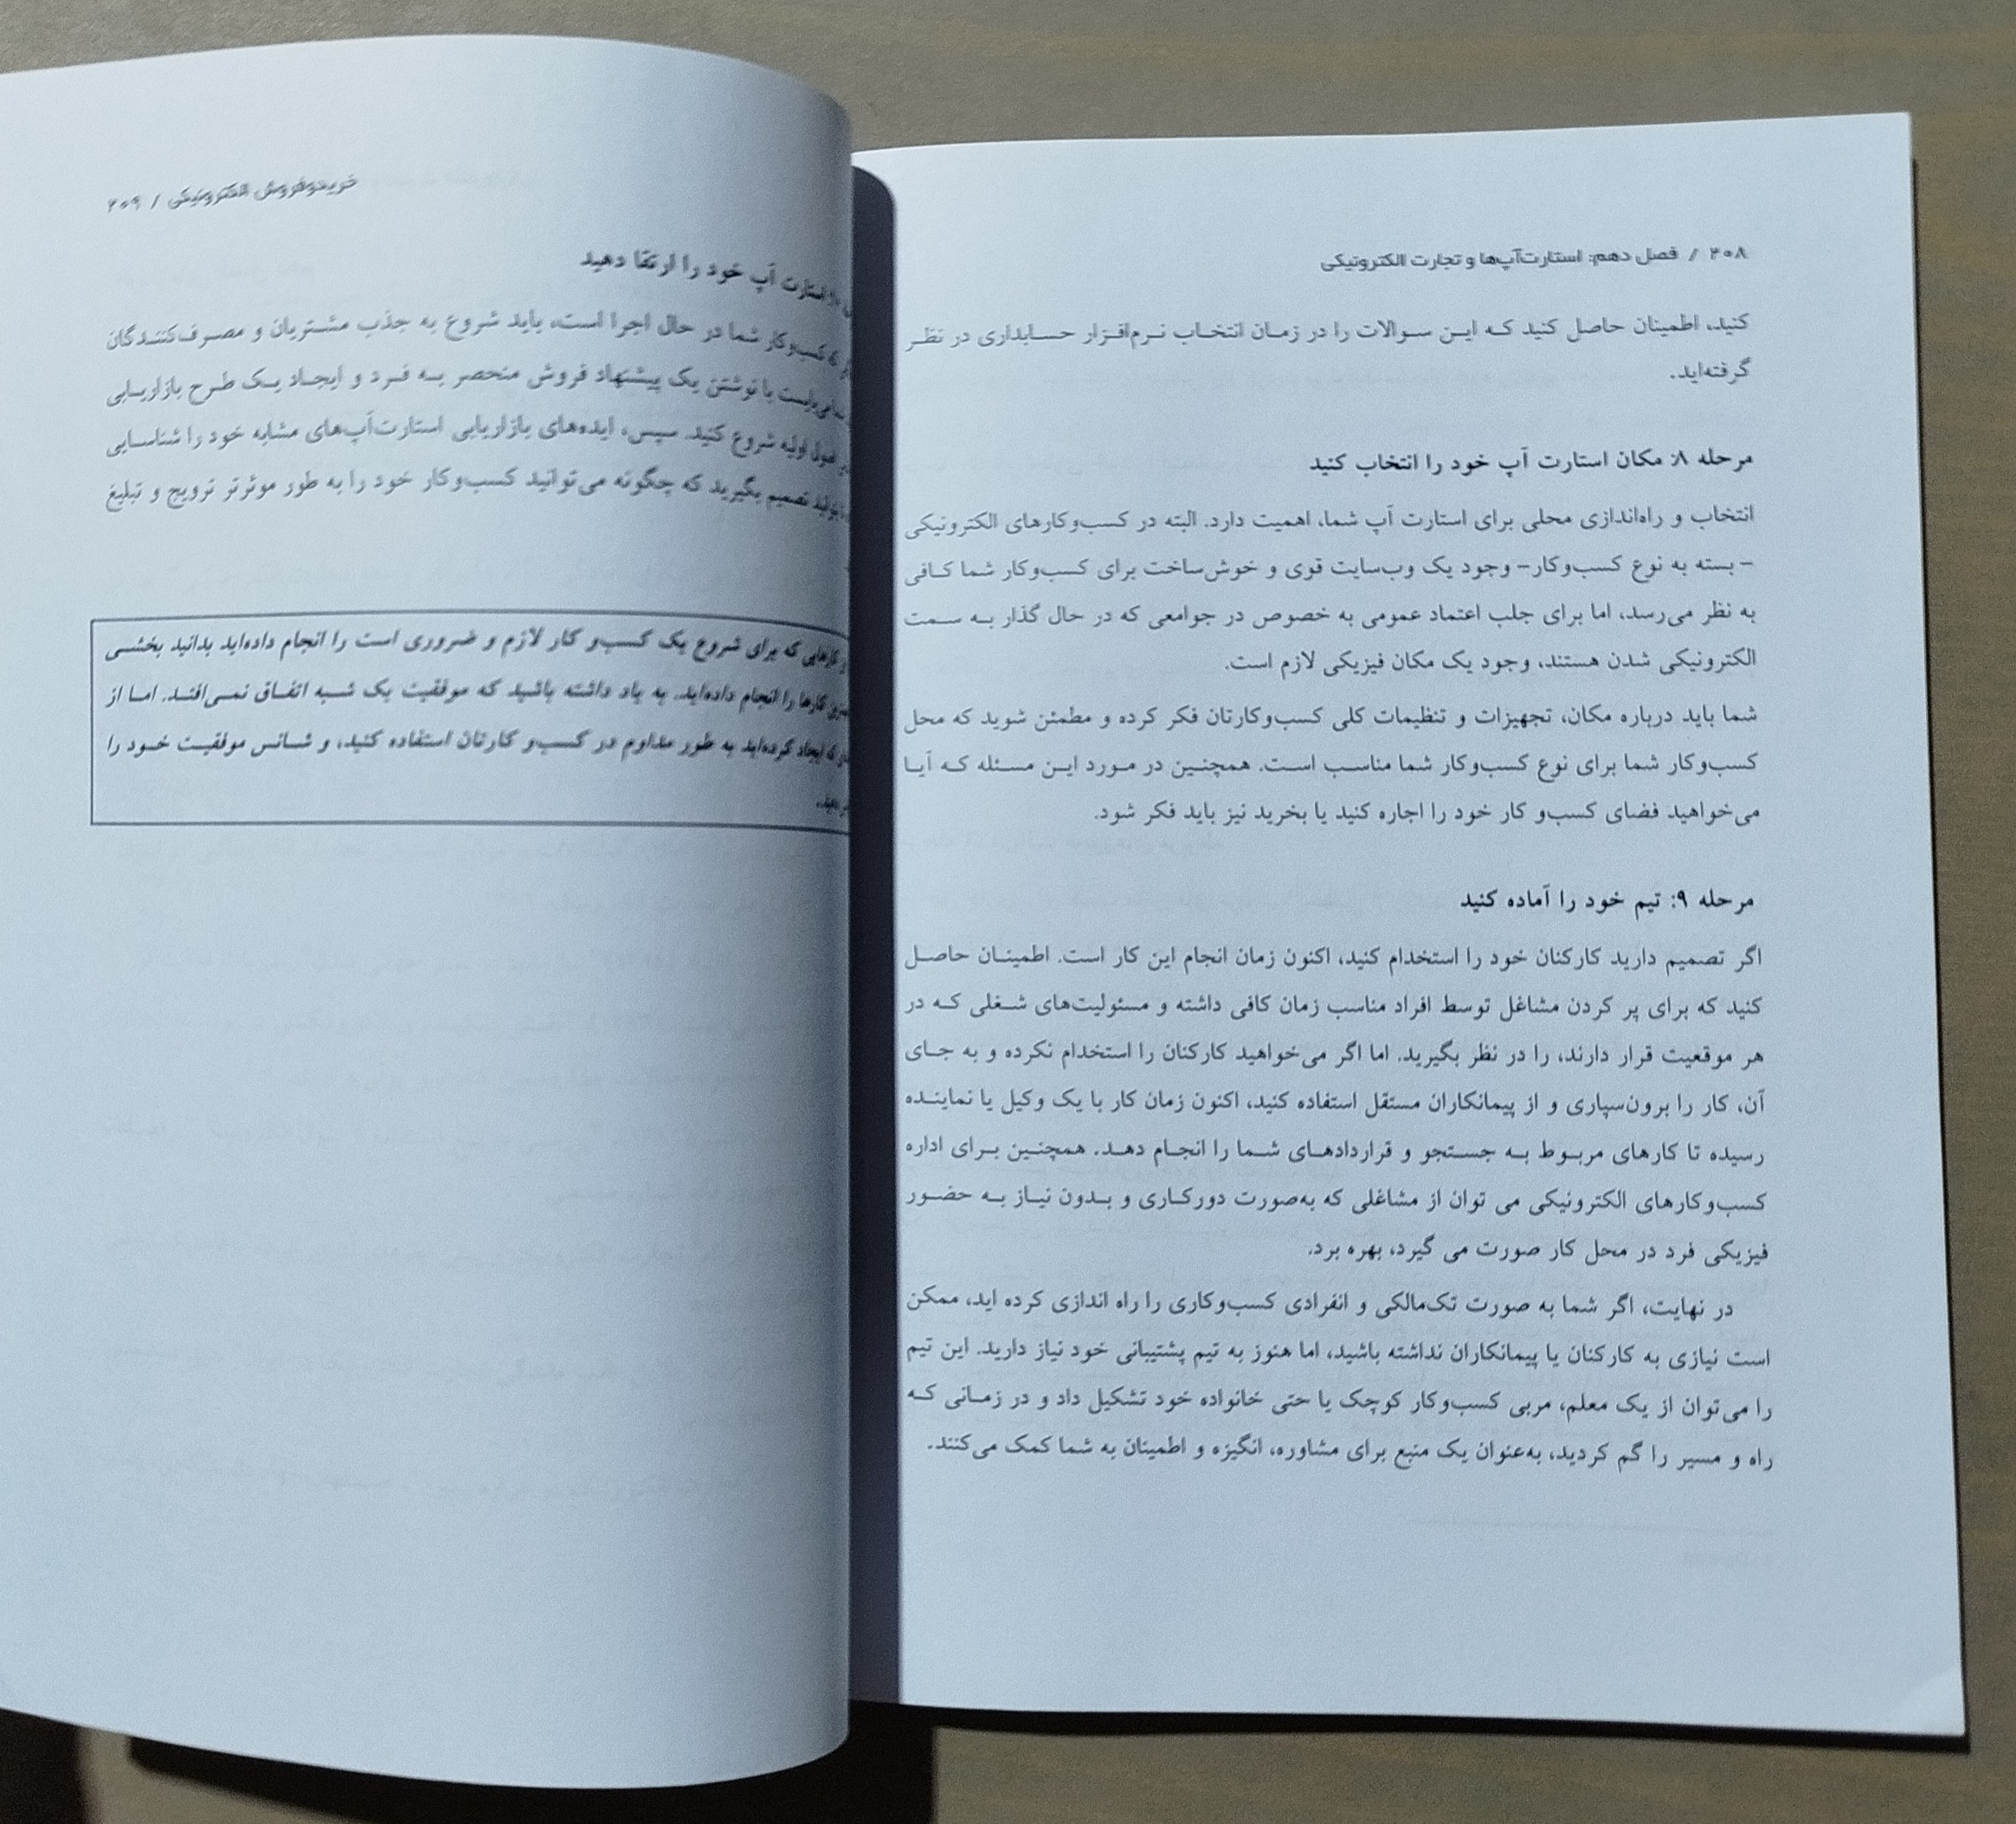 ۲۰۸ / فصل دهم: استارت‌آپ‌ها و تجارت الکترونیکی
کنید، اطمینان حاصل کنید که این سوالات را در زمان انتخاب نرم‌افزار حسابداری در نظر
گرفته‌اید.
مرحله ۸: مکان استارت آپ خود را انتخاب کنید
انتخاب و راه‌اندازی محلی برای استارت آپ شما، اهمیت دارد. البته در کسب‌وکارهای الکترونیکی
- بسته به نوع کسب‌وکار- وجود یک وب‌سایت قوی و خوش‌ساخت برای کسب‌وکار شما کافی
به نظر می‌رسد، اما برای جلب اعتماد عمومی به خصوص در جوامعی که در حال گذار به سمت
الکترونیکی شدن هستند، وجود یک مکان فیزیکی لازم است.
شما باید درباره مکان، تجهیزات و تنظیمات کلی کسب‌وکارتان فکر کرده و مطمئن شوید که محل
کسب‌وکار شما برای نوع کسب‌وکار شما مناسب است. همچنین در مورد این مسئله که آیا
می‌خواهید فضای کسب‌و کار خود را اجاره کنید یا بخرید نیز باید فکر شود.
مرحله ۹: تیم خود را آماده کنید
اگر تصمیم دارید کارکنان خود را استخدام کنید، اکنون زمان انجام این کار است. اطمینان حاصل
کنید که برای پر کردن مشاغل توسط افراد مناسب زمان کافی داشته و مسئولیت‌های شغلی که در
هر موقعیت قرار دارند، را در نظر بگیرید. اما اگر می‌خواهید کارکنان را استخدام نکرده و به جای
آن، کار را برون‌سپاری و از پیمانکاران مستقل استفاده کنید، اکنون زمان کار با یک وکیل یا نماینده
رسیده تا کارهای مربوط به جستجو و قراردادهای شما را انجام دهد. همچنین برای اداره
کسب‌وکارهای الکترونیکی می توان از مشاغلی که به‌صورت دورکاری و بدون نیاز به حضور
فیزیکی فرد در محل کار صورت می گیرد، بهره برد.
در نهایت، اگر شما به صورت تک‌مالکی و انفرادی کسب‌وکاری را راه اندازی کرده اید، ممکن
است نیازی به کارکنان یا پیمانکاران نداشته باشید، اما هنوز به تیم پشتیبانی خود نیاز دارید. این تیم
را می‌توان از یک معلم، مربی کسب‌وکار کوچک یا حتی خانواده خود تشکیل داد و در زمانی که
راه و مسیر را گم کردید، به‌عنوان یک منبع برای مشاوره، انگیزه و اطمینان به شما کمک می‌کنند.
خریدوفروش الکترونیکی / ۲۰۹
استارت آپ خود را ارتقا دهید
کسب‌وکار شما در حال اجرا است، باید شروع به جذب مشتریان و مصرف‌کنندگان
با نوشتن یک پیشنهاد فروش منحصر به فرد و ایجاد یک طرح بازاریابی
اولیه شروع کنید. سپس، ایده‌های بازاریابی استارت‌آپ‌های مشابه خود را شناسایی
تصمیم بگیرید که چگونه می‌توانید کسب‌وکار خود را به طور موثرتر ترویج و تبلیغ
کارهایی که برای شروع یک کسب‌و کار لازم و ضروری است را انجام داده‌اید بدانید بخشی
کارها را انجام داده‌اید. به یاد داشته باشید که موفقیت یک شبه اتفاق نمی‌افتد. اما از
که ایجاد کرده‌اید به طور مداوم در کسب‌و کارتان استفاده کنید، و شانس موفقیت خود را